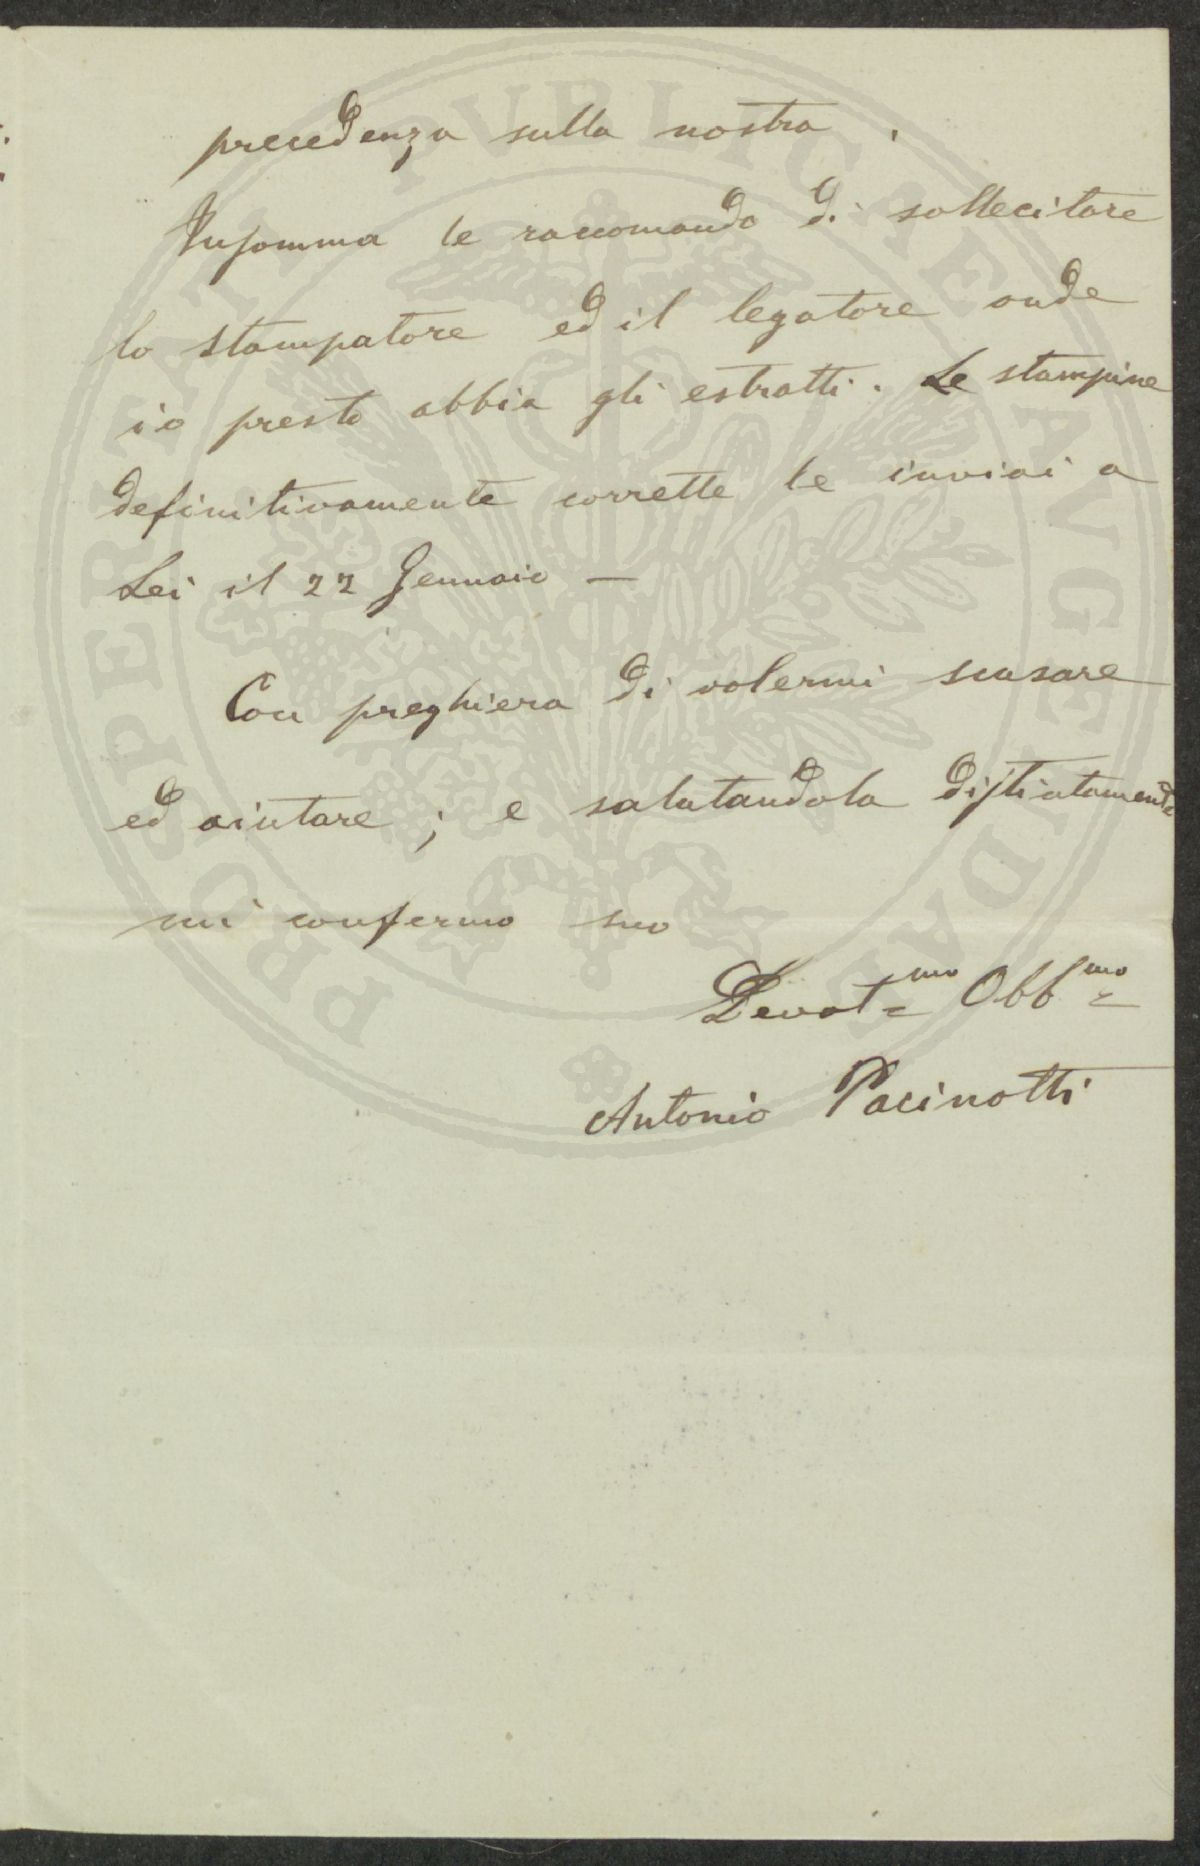 precedenza sulla nostra.
Insomma le raccomando di sollecitare
lo stampatore ed il legatore onde
io presto abbia gli estratti. Le stampine
definitivamente corrette le inviai a
Lei il 22 Gennaio —
Con preghiera di volermi scusare
ed aiutare; e salutandola distintamente
mi confermo suo
Devot.mo Obb.mo
Antonio Pacinotti
PROSPERITATI PVBLICAE AVGENDAE